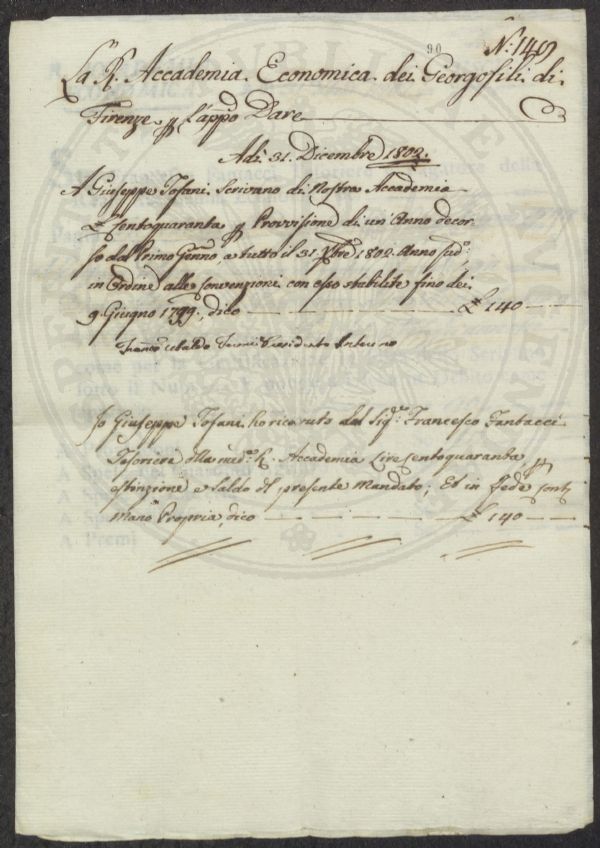 90
N: 149
La R. Accademia Economica dei Georgofili di
Firenze
Dare
Adì 31. Dicembre 1802.
A Giuseppe Tofani Scrivano di Nostra Accademia
£ Centoquaranta p Provvisione di un Anno decor-
so dal Primo Genno a tutto il 31. Xbre 1802. Anno sudo:
in Ordine alle Convenzioni con esso stabilite fino dei
9. Giugno 1799, dico £ 140
Ubaldo Presidente Interino
Io Giuseppe Tofani ho ricevuto dal Sigr: Francesco Fantacci
Tesoriere della meda: R. Accademia Lire Centoquaranta p
estinzione e Saldo del presente Mandato; Et in fede
Mano Propria, dico £ 140
A Premi